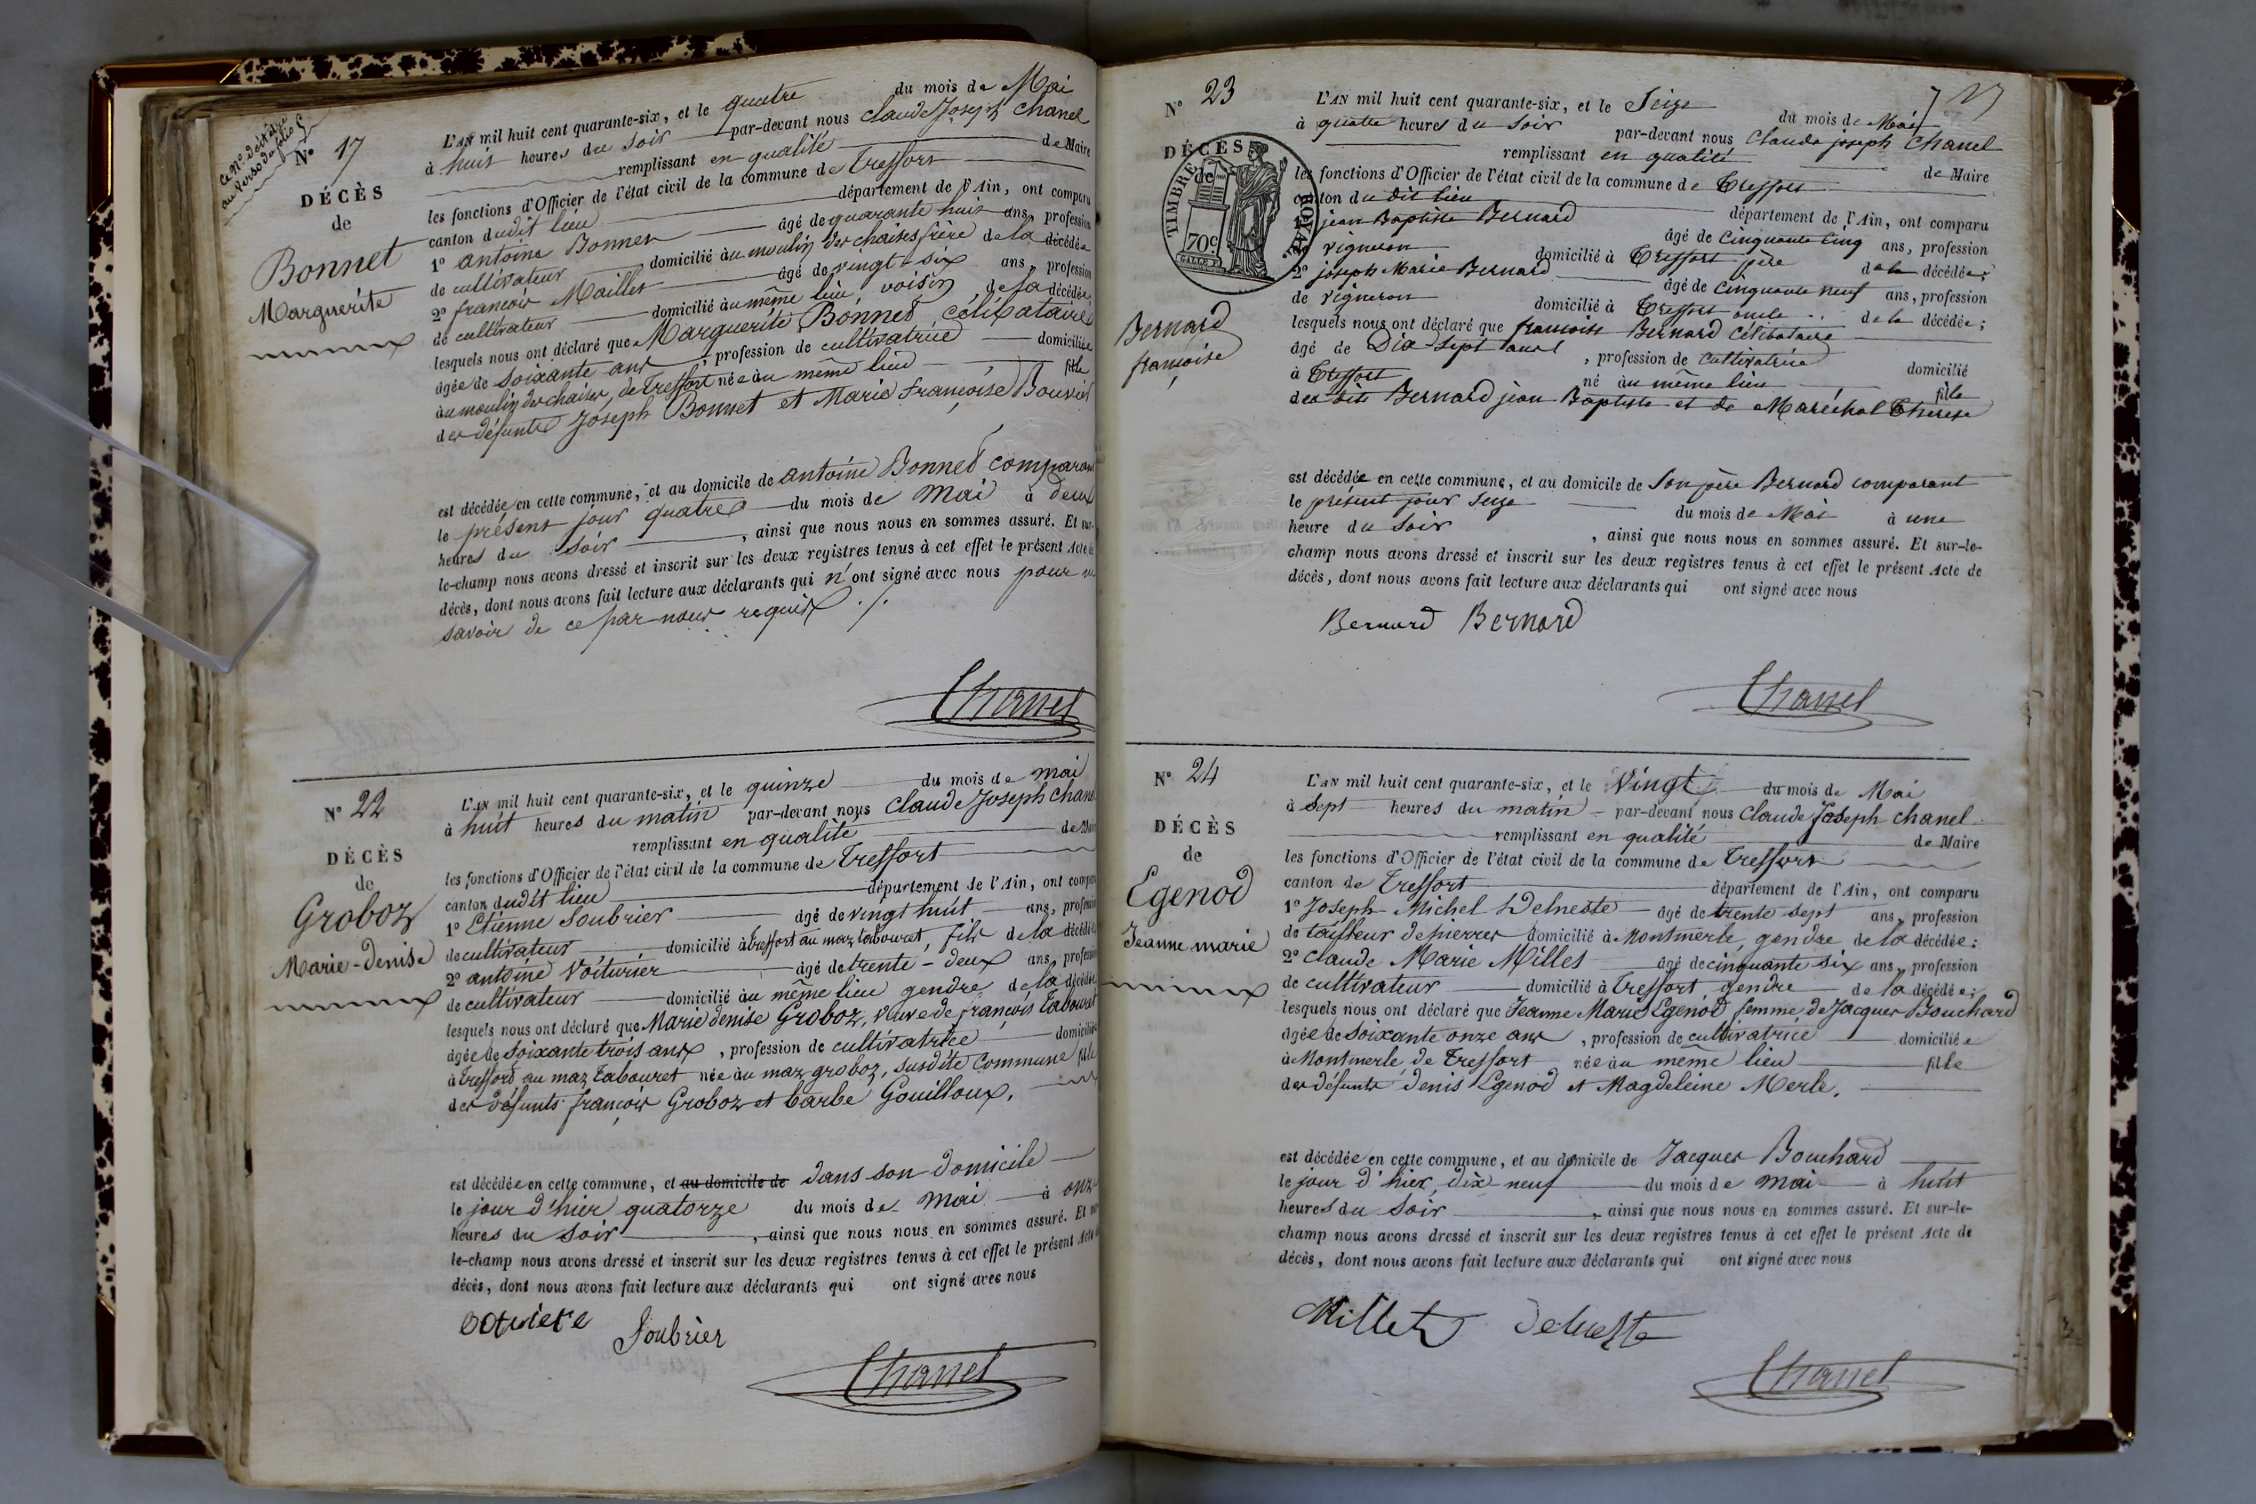 au verso du folio
N° 17
DÉCÈS
de
Bonnet
Marguerite
L'AN mil huit cent quarante-six, et le quatre du mois de Mai
à huit heures du soir par-devant nous Claude Joseph Chanel
remplissant en qualité de Maire
les fonctions d'Officier de l'état civil de la commune de Treffort
canton dudit lieu département de l'Ain, ont comparu
1° antoine Bonnet âgé de quarante huit ans, profession
de cultivateur domicilié au moulin des chaises frère de la décédée
2° françois Maillet âgé de vingt-six ans, profession
de cultivateur domicilié au même lieu, voisin de la décédée,
lesquels nous ont déclaré que Marguerite Bonnet célibataire
âgée de soixante ans, profession de cultivatrice domiciliée
au moulin des chaises, de Treffort née au même lieu fille
des défunts Joseph Bonnet et Marie françoise Bouvier
est décédée en cette commune, et au domicile de antoine Bonnet comparant
le présent jour quatre du mois de Mai à deux
heures du soir, ainsi que nous nous en sommes assuré. Et sur-
le-champ nous avons dressé et inscrit sur les deux registres tenus à cet effet le présent Acte de
décès, dont nous avons fait lecture aux déclarants qui n'ont signé avec nous pour ne
savoir de ce par nous requis ./.
Chanel
N° 22
DÉCÈS
de
Groboz
Marie-denise
L'AN mil huit cent quarante-six, et le quinze du mois de mai
à huit heures du matin par-devant nous Claude Joseph Chanel
remplissant en qualité de Maire
les fonctions d'Officier de l'état civil de la commune de Treffort
canton dudit lieu département de l'Ain, ont comparu
1° Etienne Soubrier âgé de vingt huit ans, profession
de cultivateur domicilié à Treffort au maz tabouret, fils de la décédée
2° antoine Voiturier âgé de trente-deux ans, profession
de cultivateur domicilié au même lieu gendre de la décédée
lesquels nous ont déclaré que Marie denise Groboz, veuve de françois Tabouret
âgée de soixante trois ans, profession de cultivatrice domiciliée
à Treffort au maz Tabouret née au maz groboz, susdite Commune fille
des défunts françois Groboz et barbe Gouilloux.
est décédée en cette commune, et au domicile de dans son domicile
le jour d'hier quatorze du mois de mai à onze
heures du soir, ainsi que nous nous en sommes assuré. Et sur-
le-champ nous avons dressé et inscrit sur les deux registres tenus à cet effet le présent Acte de
décès, dont nous avons fait lecture aux déclarants qui ont signé avec nous
Soubrier
Chanel
17
N° 23
DÉCÈS
de
TIMBRE ROYAL
70c
Bernard
françoise
L'AN mil huit cent quarante-six, et le Seize du mois de Mai
à quatre heures du soir par-devant nous Claude joseph Chanel
remplissant en qualité de Maire
les fonctions d'Officier de l'état civil de la commune de Treffort
canton du dit lieu département de l'Ain, ont comparu
jean Baptiste Bernard âgé de Cinquante Cinq ans, profession
de vigneron domicilié à Treffort père de la décédée;
2° joseph Marie Bernard âgé de Cinquante neuf ans, profession
de vigneron domicilié à Treffort oncle de la décédée;
lesquels nous ont déclaré que françoise Bernard Célibataire
âgé de Dix Sept ans, profession de Cultivatrice domicilié
à Treffort né au même lieu fille
des dits Bernard jean Baptiste et de Maréchal Therese
est décédée en cette commune, et au domicile de Son père Bernard comparant
le présent jour Seize du mois de Mai à une
heure du soir, ainsi que nous nous en sommes assuré. Et sur-le-
champ nous avons dressé et inscrit sur les deux registres tenus à cet effet le présent Acte de
décès, dont nous avons fait lecture aux déclarants qui ont signé avec nous
Bernard Bernard
Chanel
N° 24
DÉCÈS
de
Egenod
Jeanne marie
L'AN mil huit cent quarante-six, et le Vingt du mois de Mai
à Sept heures du matin par-devant nous Claude Joseph Chanel
remplissant en qualité de Maire
les fonctions d'Officier de l'état civil de la commune de Treffort
canton de Treffort département de l'Ain, ont comparu
1° Joseph Michel Delneste âgé de trente sept ans, profession
de tailleur de pierres domicilié à Montmerle, gendre de la décédée;
2° Claude Marie Millet âgé de cinquante six ans, profession
de cultivateur domicilié à Treffort gendre de la décédée;
lesquels nous ont déclaré que Jeanne Marie Egenod femme de Jacques Bouchard
âgée de soixante onze ans, profession de cultivatrice domiciliée
à Montmerle, de Treffort née au même lieu fille
des défunts denis Egenod et Magdeleine Merle.
est décédée en cette commune, et au domicile de Jacques Bouchard
le jour d'hier, dix neuf du mois de mai à huit
heures du soir, ainsi que nous nous en sommes assuré. Et sur-le-
champ nous avons dressé et inscrit sur les deux registres tenus à cet effet le présent Acte de
décès, dont nous avons fait lecture aux déclarants qui ont signé avec nous
Millet Delneste
Chanel